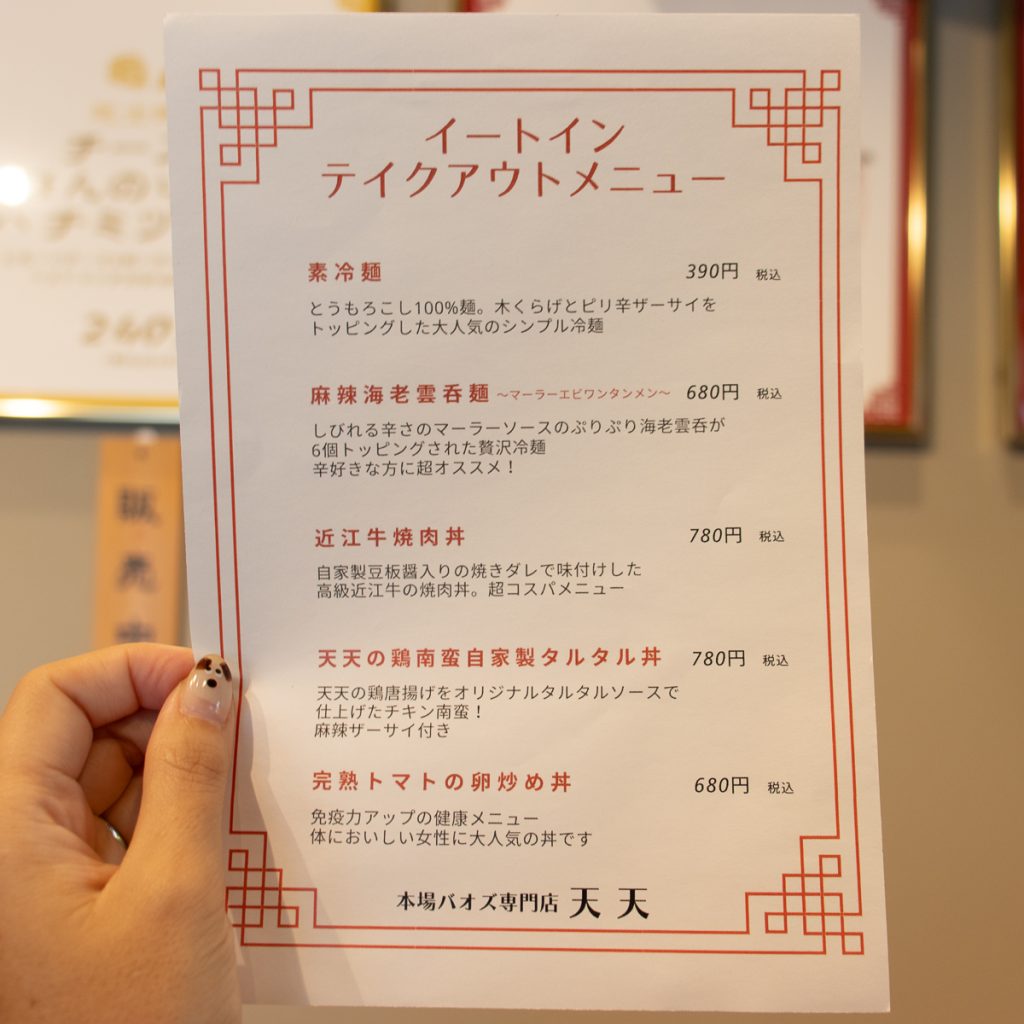 イートイン
テイクアウトメニュー
素冷麺 390円 税込
とうもろこし100%麺。木くらげとピリ辛ザーサイを
トッピングした大人気のシンプル冷麺
麻辣海老雲呑麺 ～マーラーエビワンタンメン～ 680円 税込
しびれる辛さのマーラーソースのぷりぷり海老雲呑が
6個トッピングされた贅沢冷麺
辛好きな方に超オススメ！
近江牛焼肉丼 780円 税込
自家製豆板醤入りの焼きダレで味付けした
高級近江牛の焼肉丼。超コスパメニュー
天天の鶏南蛮自家製タルタル丼 780円 税込
天天の鶏唐揚げをオリジナルタルタルソースで
仕上げたチキン南蛮！
麻辣ザーサイ付き
完熟トマトの卵炒め丼 680円 税込
免疫力アップの健康メニュー
体においしい女性に大人気の丼です
本場バオズ専門店 天天
ハチミツ
260
販売中